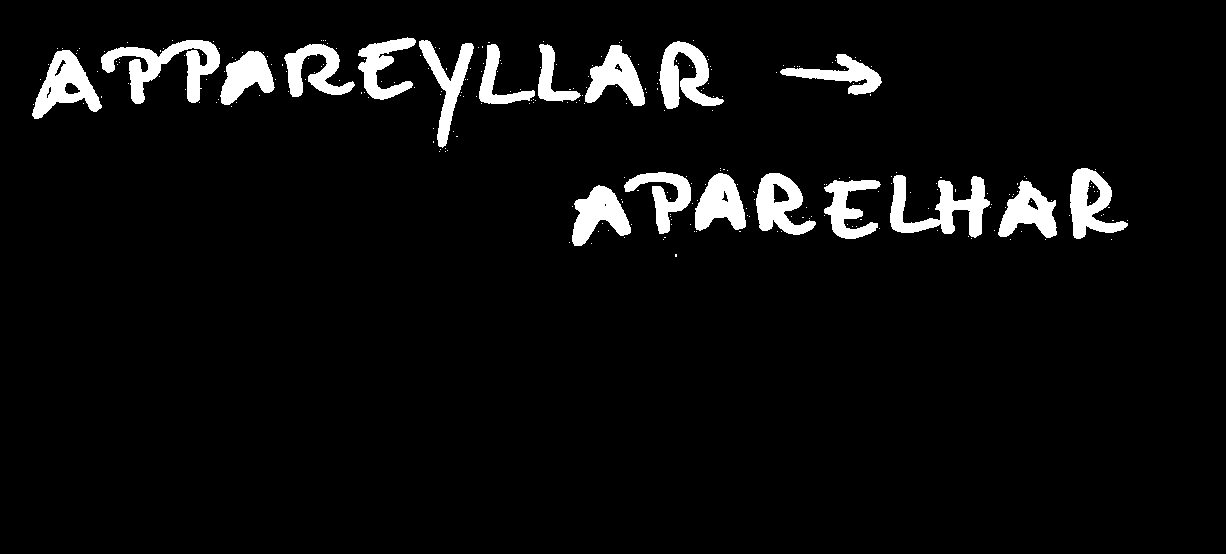 APPAREYLLAR →
APARELHAR